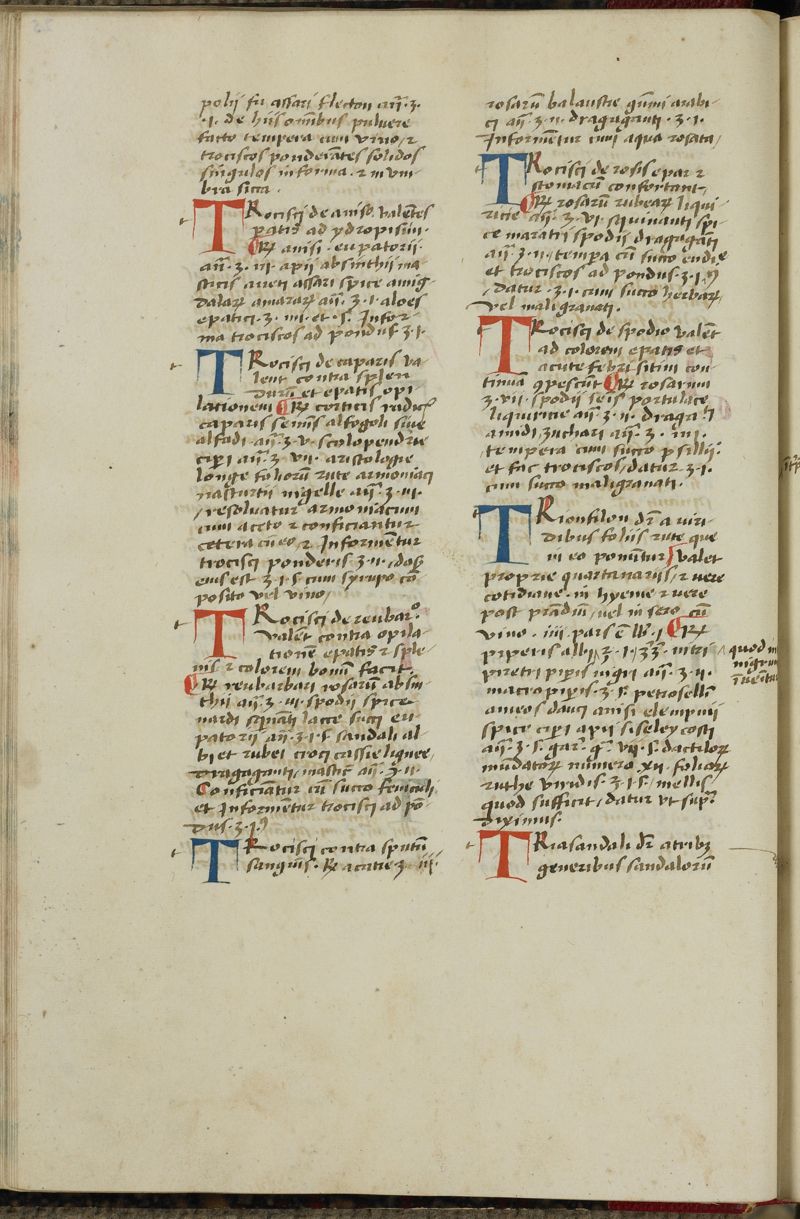 polij fu assari flecton añ. ʒ.
.i. de hijs omnibus pulvere
facto tempera cum vino / ⁊
trociscos ponderantes solidos
singulos informa . ⁊ in um
bra sicca .
Trocisci de aniso. valētes
ꝑatis ad ydropisim .
℞ anisi . eupatorij .
añ. ʒ. iij apij absinthij ma
sticis aneti assari spice amig
dalaꝝ amararꝝ añ. ʒ. i. aloes
epatici . ʒ. iiij. et . s. Infor
ma trociscos ad pondus ʒ. i.
Trocisci de caparis va
lent contra splen
durā et epatis opi
lationem ℞ corticis radic̄
caparis semīs alfogoli siue
alfadi añ. ʒ. v. scolopendrie
ciꝑi añ. ʒ. vii. aristologie
longe foliorū rute armoniaci
nasturtii nigelle añ. ʒ. iii.
/ resolvatur armoniacum
cum aceto ⁊ conficiantur
cetera cū eo / ⁊ Informētur
trocisci ponderis ʒ. ii / dos
eius est ʒ. i. s. cum syrupo cō
posito vel vino /
Trocisci de reubar.
Valēt contra opila
tionē epatis ⁊ sple
nis ⁊ colorem bonū facit
℞ reubarbari rosarū absin
thii añ. ʒ. iii spodij spice
nardi sqnāti lacce succi eu
patorij añ. ʒ. i. s. sandali al
bi et rubei croci cassie lignee /
dragaganti / mastic̄ añ. ʒ. ii.
Conficiātur cū succo feniculi
et Informētur trocisci ad pō
dus . ʒ. i.
Trocisci contra sputū
sanguis . ℞ acatie ʒ. iii.
rosarū balaustie gūmi arabi
ci añ. ʒ. ii. dragaganti . ʒ. i.
Informētur cum aqua rosata /
Trocisci de rosis epar ⁊
stomacū confortant /
℞ rosarū rubeaꝝ liqui
ricie añ. ʒ. vi. squinanti spi
ce maratri spodij dragagāti
añ. ʒ. ii / tempa cū succo endie
et trociscos ad pondus . ʒ. i.
/ datur . ʒ. i. cum succo herbaꝝ
vel maligranati .
Trocisci de spodio valēt
ad colorem epatis et
acute febri sitim con
tinua qpescūt ℞ rosarum
ʒ. vii . spodij seīs portulace
liquiritie añ. ʒ. ii. dragagāti
amidi / zuchari añ. ʒ. iiii.
tempera cum succo psillij .
et fac trociscos / datur ʒ. i.
cum succo maligranati .
Trionfilon dr̄ a viri
dibus foliis rute que
in eo ponūtur / Valet
proprie quartanariis / ⁊ vere
cotidiane . in hyeme ⁊ vere
post prādiū / uel in sero cū
vino . iiij. pars ē lb. j ℞
piperis albi ʒ. i / ʒʒ. nitri
piretri pipis nigri añ. ʒ. ii.
macropipis . ʒ. s. petrosell̄
ameos dauci anisi elempnij
spice ciꝑi apij siseley costi
añ. ʒ. s. gar. qͣ. vii. s. dactiloꝝ
mūdatoꝝ numero xii. foliaꝝ
ruthe viridis . ʒ. i. s / mellis
quod sufficit / datur vt supͣ.
diximus .
quod in
nigrum
Triasandali dr̄ a tribꝫ
generibus sandalorū